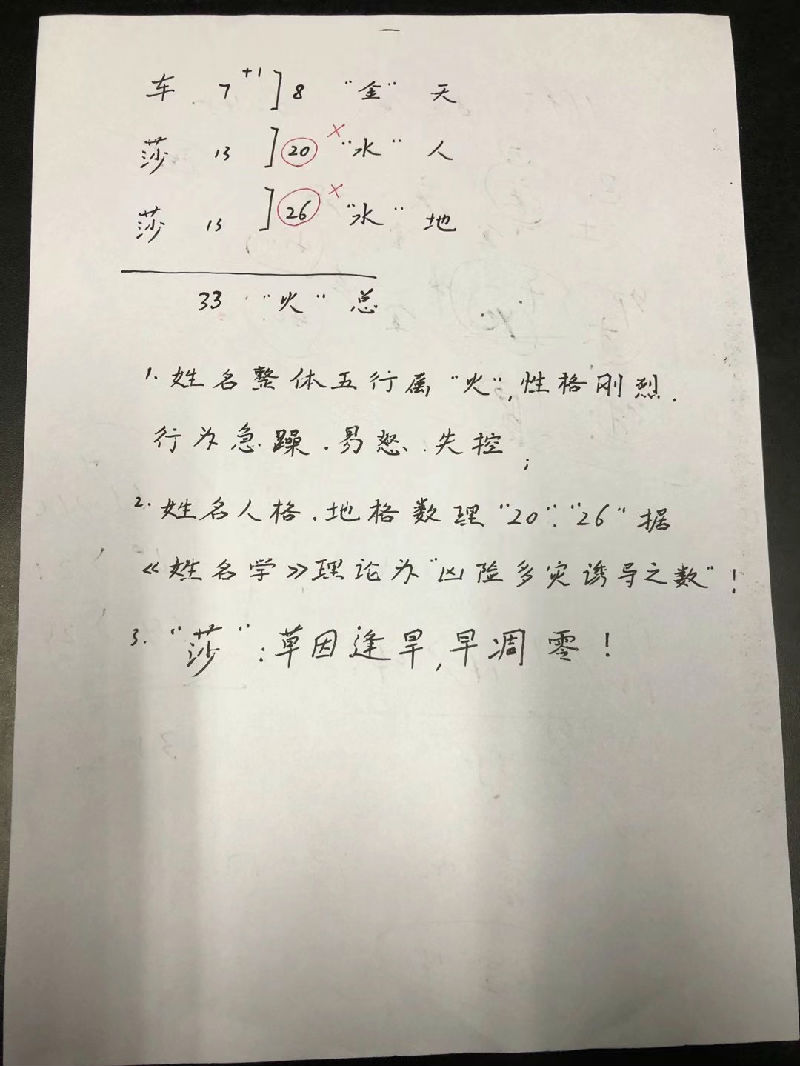 一
车 7 +1 ] 8 "金" 天
莎 13 ] 20 × "水" 人
莎 13 ] 26 × "水" 地
33 "火" 总
1. 姓名整体五行属"火",性格刚烈.
行为急躁.易怒.失控;
2. 姓名人格.地格数理"20"."26"据
《姓名学》理论为"凶险多灾诱导之数"!
3. "莎":草因逢旱,早凋零!